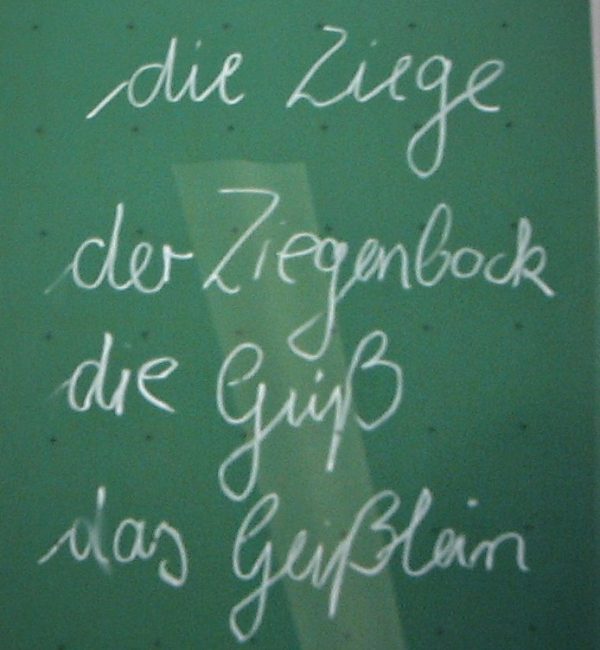 die Ziege
der Ziegenbock
die Geiß
das Geißlein